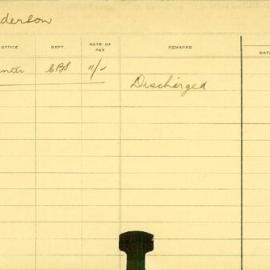 derson
OFFICE DEPT. RATE OF PAY REMARKS DAT
11/-
Discharged